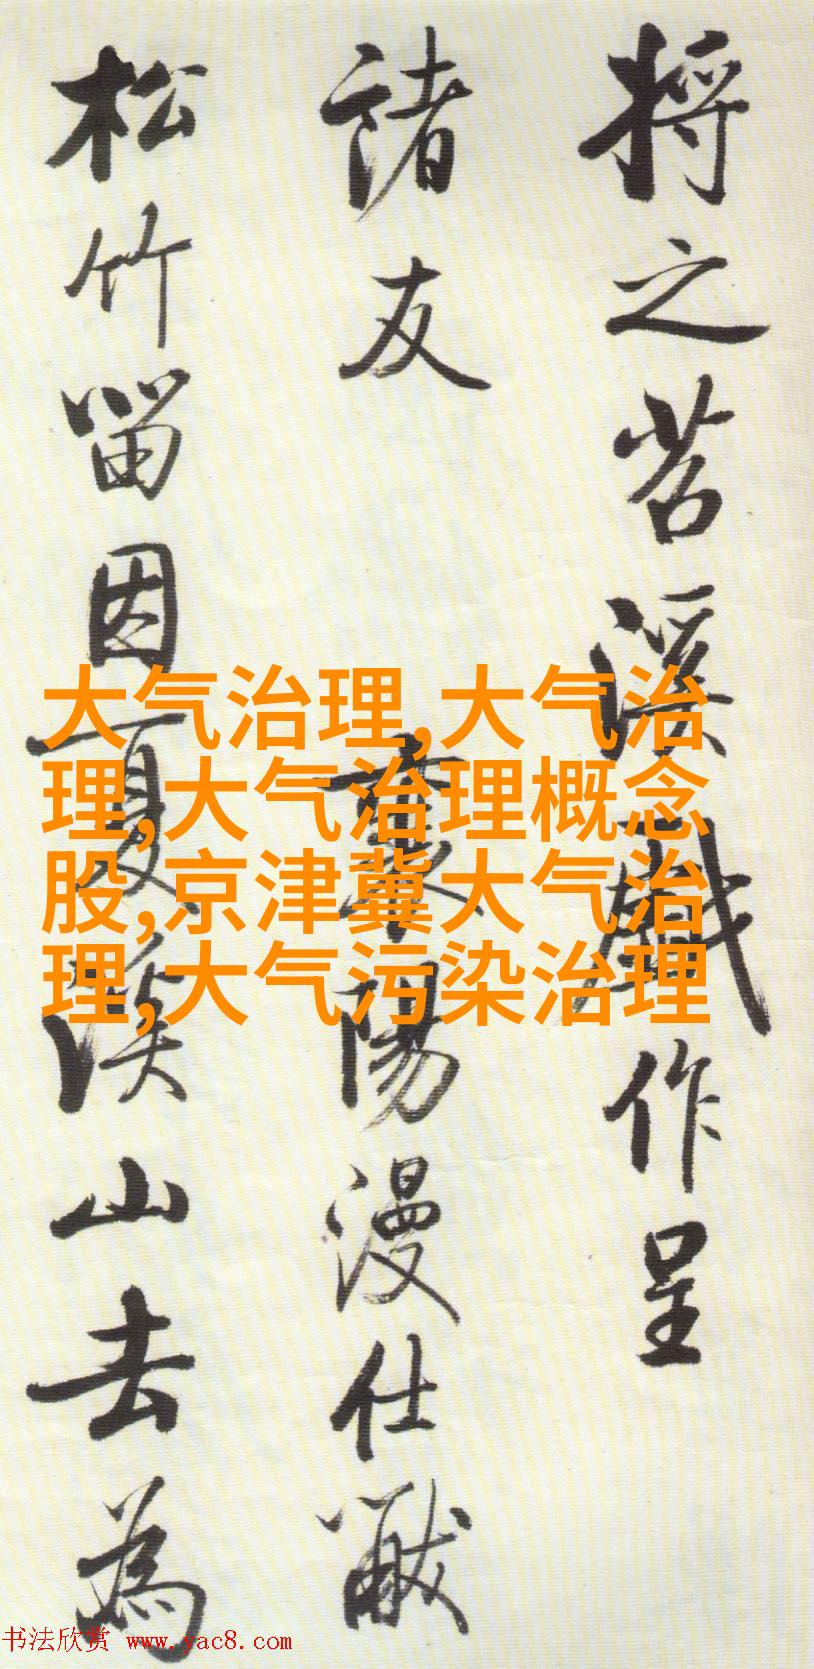 将之苕溪戲作呈
諸友
襄陽漫仕黻
松竹留因夏溪山去為
大气治理,大气治
理,大气治理概念
股,京津冀大气治
理,大气污染治理
书法欣赏 www.yac8.com